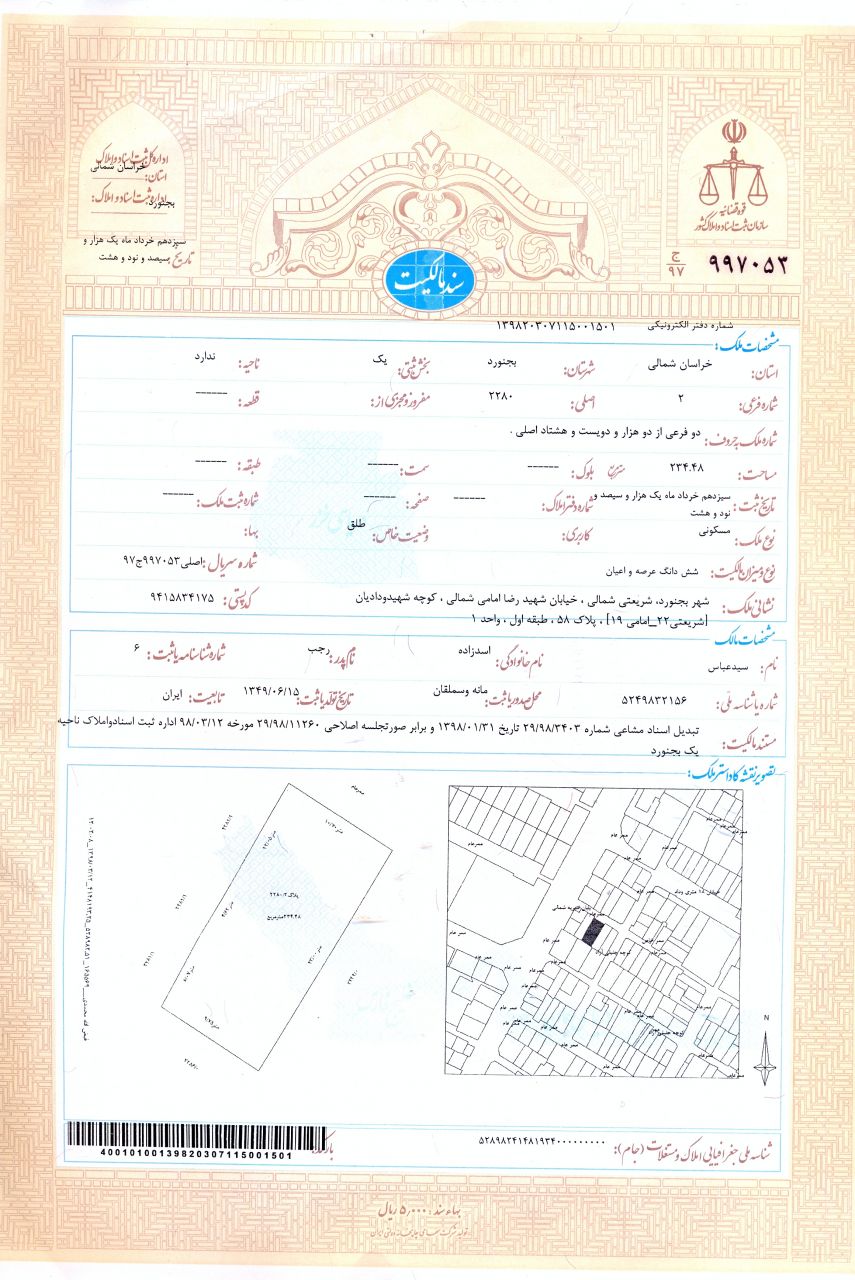 اداره کل ثبت اسناد و املاک
استان: خراسان شمالی
اداره ثبت اسناد و املاک: بجنورد
تاریخ: سیزدهم خرداد ماه یک هزار و
سیصد و نود و هشت
قوه قضائیه
سازمان ثبت اسناد و املاک کشور
ج
۹۷
۹۹۷۰۵۳
سند مالکیت
شماره دفتر الکترونیکی ۱۳۹۸۲۰۳۰۷۱۱۵۰۰۱۵۰۱
مشخصات ملک:
استان: خراسان شمالی شهرستان: بجنورد بخش ثبتی: یک ناحیه: ندارد
شماره فرعی: ۲ اصلی: ۲۲۸۰ مفروز و مجزی از: قطعه: ------
شماره ملک به حروف: دو فرعی از دو هزار و دویست و هشتاد اصلی .
مساحت: ۲۳۴.۴۸ متر مربع بلوک: ------ سمت: ------ طبقه: ------
تاریخ ثبت: سیزدهم خرداد ماه یک هزار و سیصد و نود و هشت شماره دفتر املاک: ------ صفحه: ------ شماره ثبت ملک: ------
نوع ملک: مسکونی کاربری: وضعیت خاص: طلق بها:
نوع و میزان مالکیت: شش دانگ عرصه و اعیان شماره سریال: اصلی۹۹۷۰۵۳ج۹۷
نشانی ملک: شهر بجنورد، شریعتی شمالی ، خیابان شهید رضا امامی شمالی ، کوچه شهیدودادیان کد پستی: ۹۴۱۵۸۳۴۱۷۵
[شریعتی۲۲_امامی ۱۹] ، پلاک ۵۸ ، طبقه اول ، واحد ۱
مشخصات مالک:
نام: سیدعباس نام خانوادگی: اسدزاده نام پدر: رجب شماره شناسنامه یا ثبت: ۶
شماره یا شناسه ملی: ۵۲۴۹۸۳۲۱۵۶ محل صدور یا ثبت: مانه وسملقان تاریخ تولد یا ثبت: ۱۳۴۹/۰۶/۱۵ تابعیت: ایران
مستند مالکیت: تبدیل اسناد مشاعی شماره ۲۹/۹۸/۳۴۰۳ تاریخ ۱۳۹۸/۰۱/۳۱ و برابر صورتجلسه اصلاحی ۲۹/۹۸/۱۱۲۶۰ مورخه ۹۸/۰۳/۱۲ اداره ثبت اسنادواملاک ناحیه
یک بجنورد
تصویر نقشه کاداستر ملک:
ممرعام
پلاک ۲۲۸۰/۲
۲۳۴.۴۸مترمربع
خیابان ۱۸ متری وداد
ممر عام
N
شناسه ملی جغرافیایی املاک و مستغلات (جام): ۵۲۸۹۸۲۴۱۴۸۱۹۳۴۰۰۰۰۰۰۰۰۰
بارکد:
400101001398203071150​01501
بهاء سند : ۵٫۰۰۰ ریال